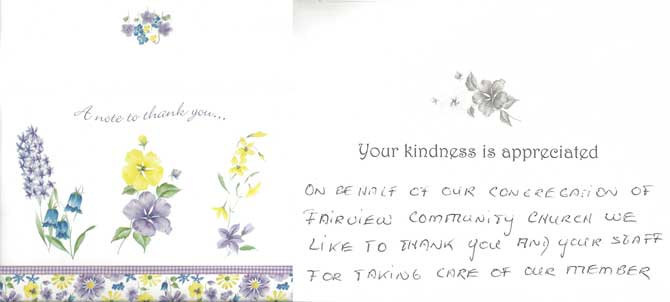 A note to thank you...
Your kindness is appreciated
ON BEHALF OF OUR CONGREGATION OF
FAIRVIEW COMMUNITY CHURCH WE
LIKE TO THANK YOU AND YOUR STAFF
FOR TAKING CARE OF OUR MEMBER